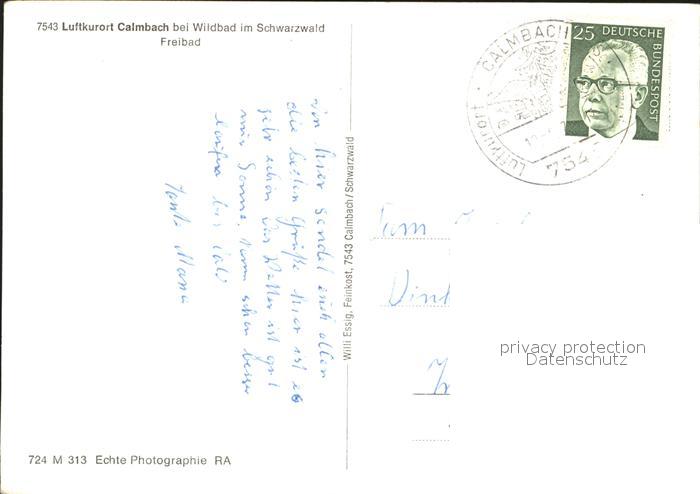 7543 Luftkurort Calmbach bei Wildbad im Schwarzwald
Freibad
von hier sendet euch allen
die besten Grüße hier ist es
sehr schön das Wetter ist gut
nur Sonne, kann schon besser
laufen bis bald
Tante Mama
724 M 313 Echte Photographie RA
Willi Essig, Feinkost, 7543 Calmbach/Schwarzwald
CALMBACH
Luftkurort
754
25 DEUTSCHE
BUNDESPOST
Fam
privacy protection
Datenschutz